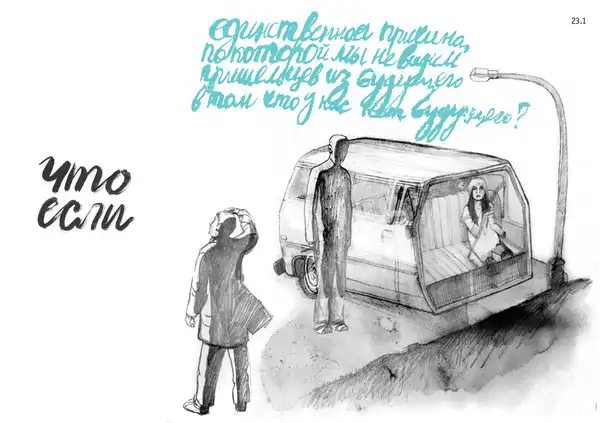 23.1
что
если
единственная причина,
по которой мы не видим
пришельцев из будущего
в том что у нас нет будущего?